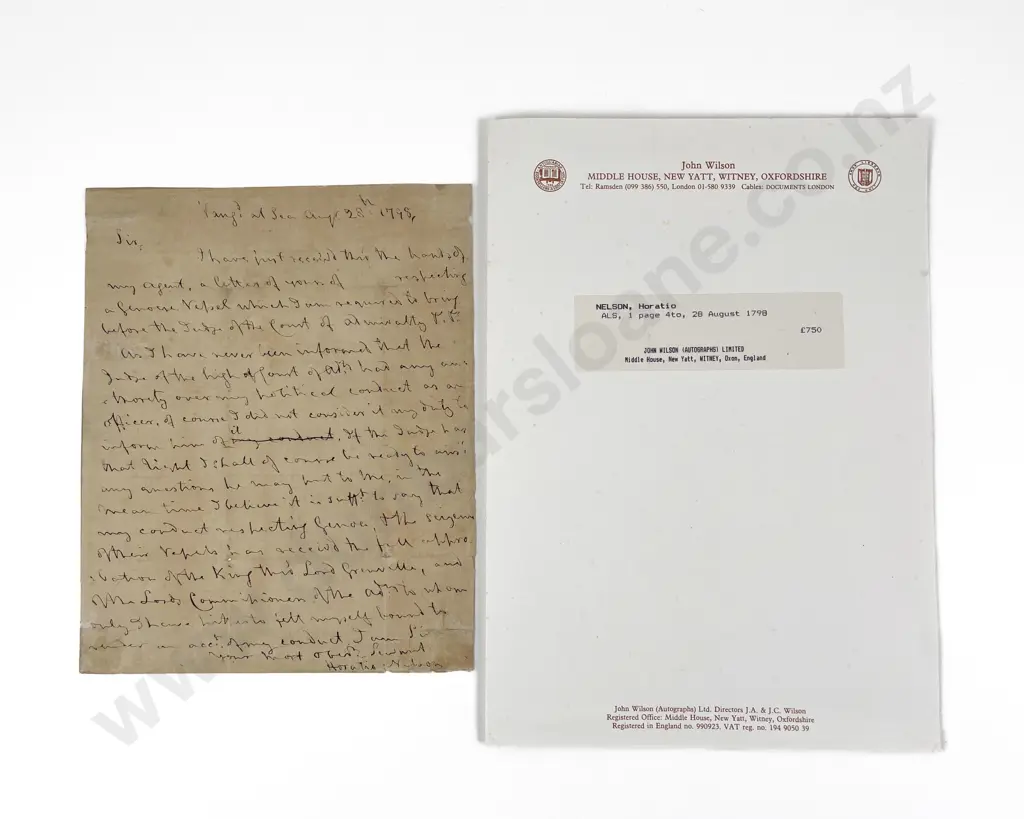 Vang.d at Sea Aug.t 28.th 1798,
Sir,
I have just received thro the hands of
my agent, a letter of yours of respecting
a Genoese Vessel which I am requested to bring
before the Judge of the Court of Admiralty
As I have never been informed that the
Judge of the high Court of Ad.ty had any au-
thority over my political conduct as an
officer, of course I did not consider it my duty to
inform him of it my conduct, If the Judge has
that right I shall of course be ready to ans.r
any questions he may put to Me, in the
mean time I believe it is suff.t to say that
my conduct respecting Genoa, & the seizure
of their Vessels has received the full appro-
bation of the King thro Lord Grenville, and
of the Lords Commissioners of the Ad.ty to whom
only I have hitherto felt myself bound to
render an acc.t of my conduct. I am Sir
your most obed.t Servant
Horatio Nelson
John Wilson
MIDDLE HOUSE, NEW YATT, WITNEY, OXFORDSHIRE
Tel: Ramsden (099 386) 550, London 01-580 9339 Cables: DOCUMENTS LONDON
NELSON, Horatio
ALS, 1 page 4to, 28 August 1798
£750
JOHN WILSON (AUTOGRAPHS) LIMITED
Middle House, New Yatt, WITNEY, Oxon, England
John Wilson (Autographs) Ltd. Directors J.A. & J.C. Wilson
Registered Office: Middle House, New Yatt, Witney, Oxfordshire
Registered in England no. 990923. VAT reg. no. 194 9050 39